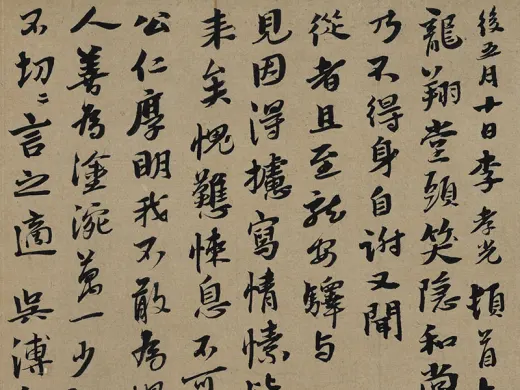 後五月廿日李孝光頓首
龍翔堂頭笑隐和尚
乃不得身自謝又聞
從者且至龍安驛与
見因得攄寫情愫
来矣愧難悚息不可
公仁厚明我不敢為
人善為塗涴萬一少
不切々言之適吳溥